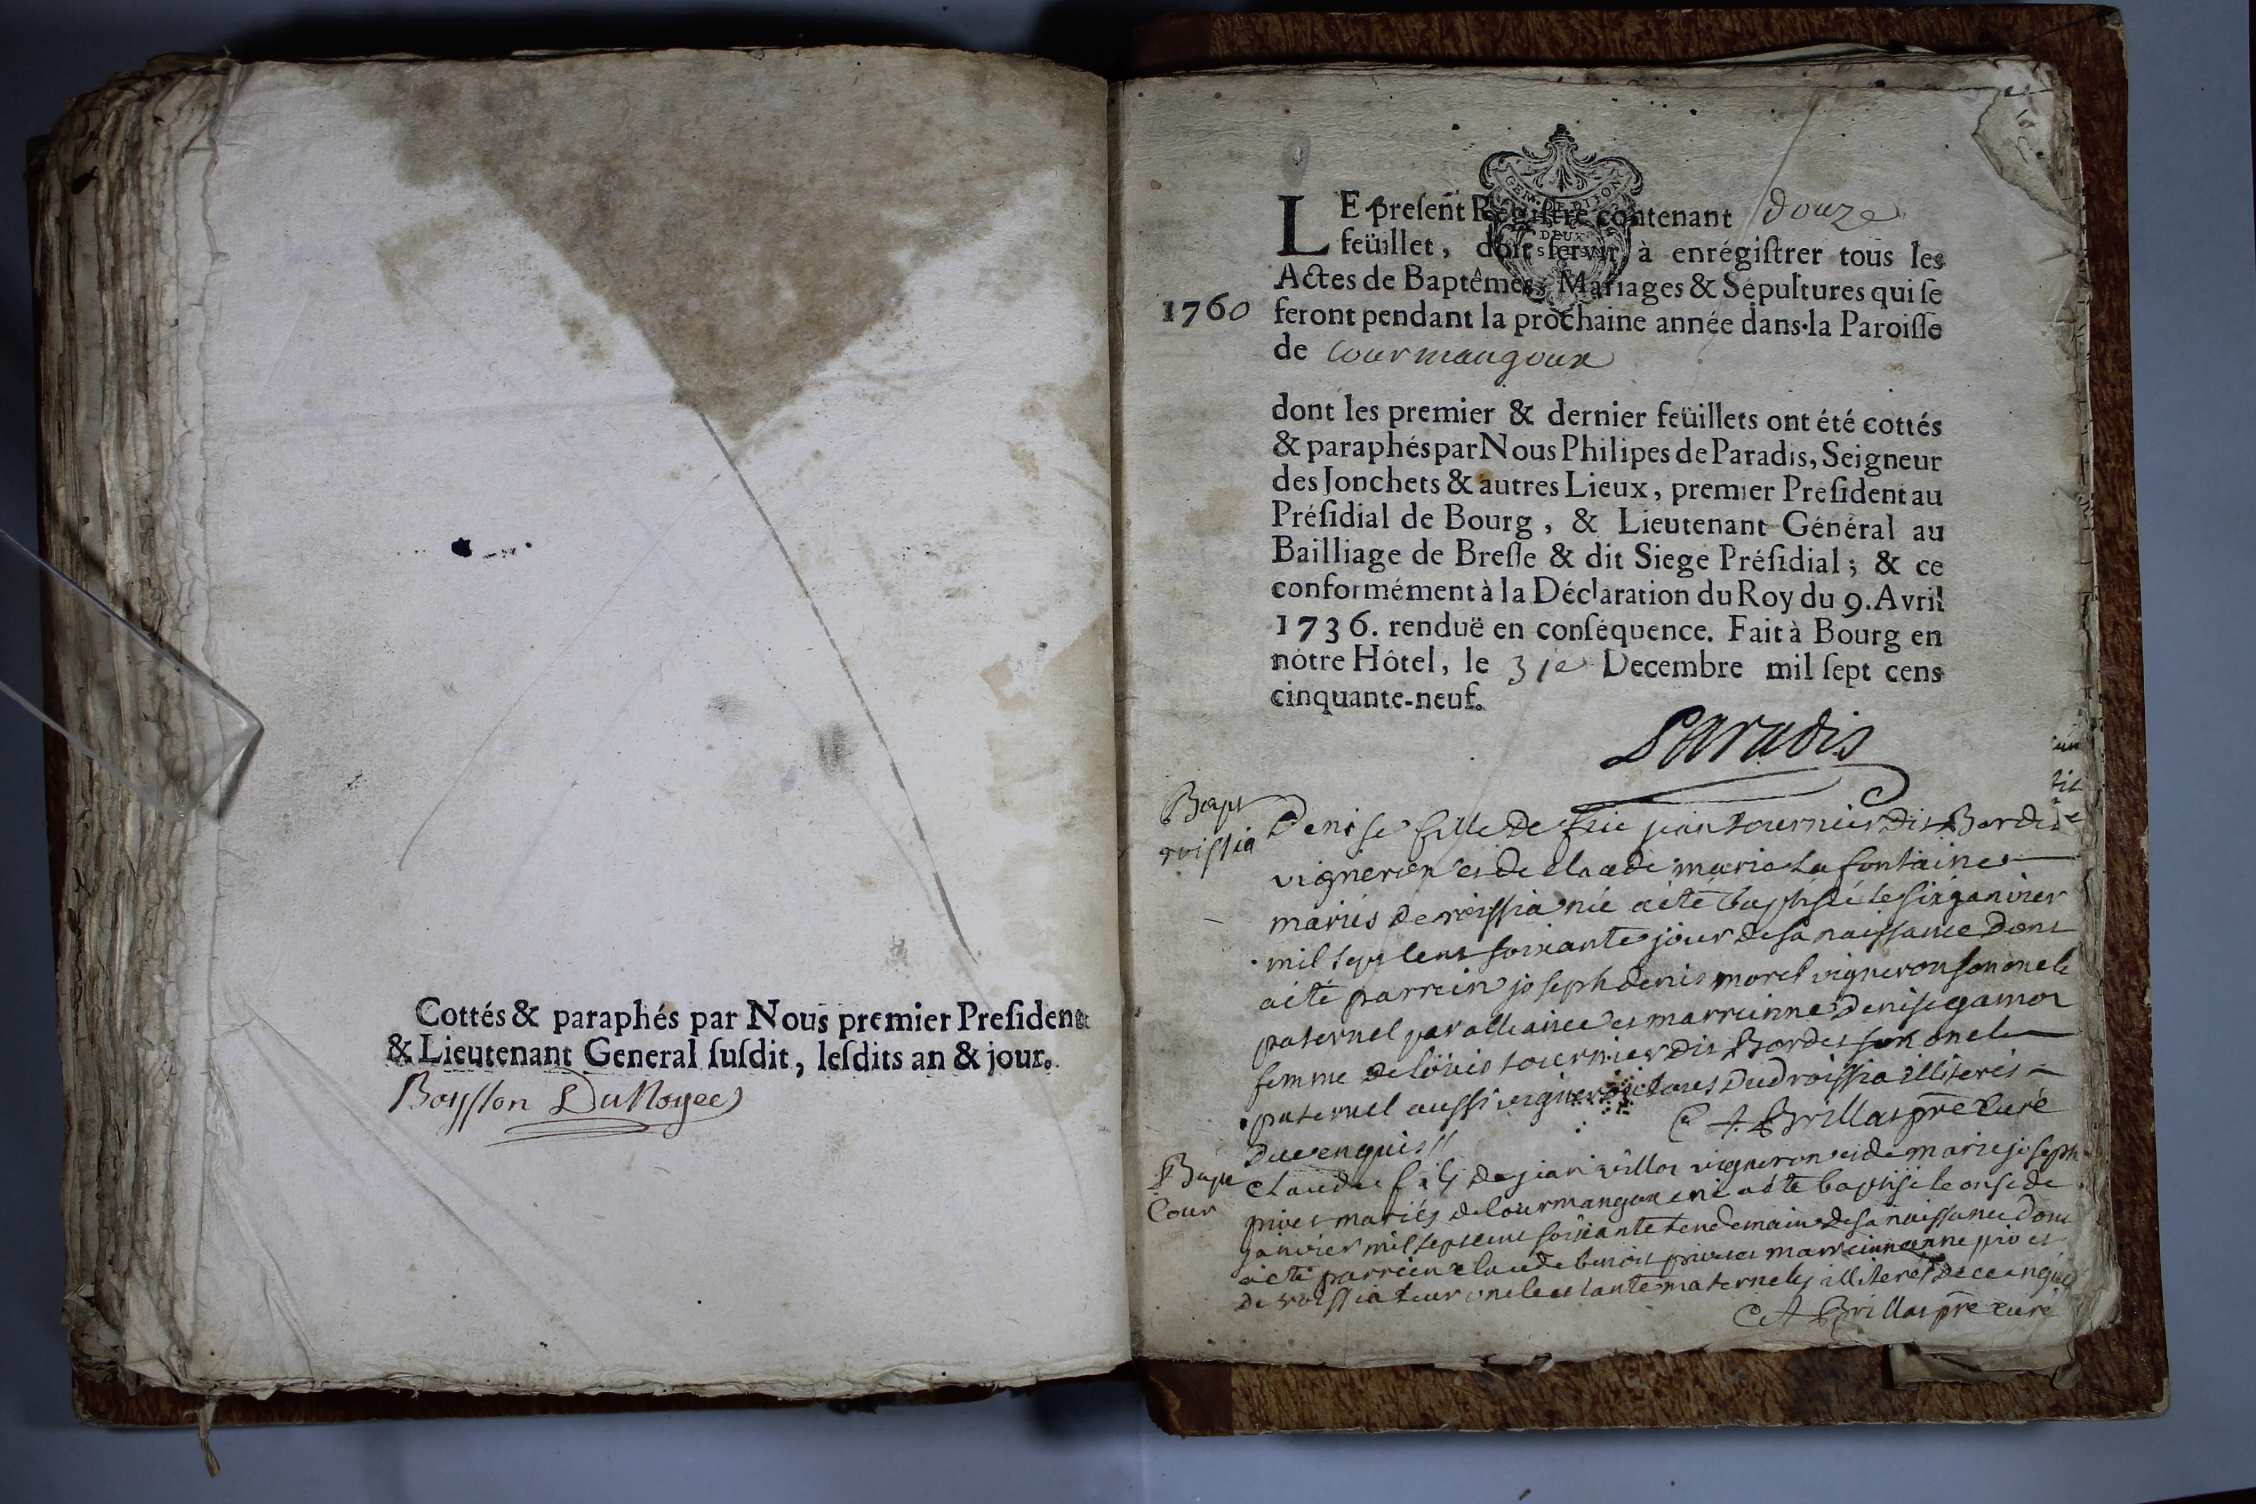 Cottés & paraphés par Nous premier Preſident
& Lieutenant General ſuſdit, leſdits an & jour.
Boysson DuNoyer
GEN. DE DIJON
DEUX
SOLS
LE preſent Regiſtre contenant douze
feüillet, doit ſervir à enrégiſtrer tous les
Actes de Baptêmes, Mariages & Sépultures qui ſe
1760 feront pendant la prochaine année dans la Paroiſſe
de Courmangoux
dont les premier & dernier feüillets ont été cottés
& paraphés par Nous Philipes de Paradis, Seigneur
des Jonchets & autres Lieux, premier Préſident au
Préſidial de Bourg, & Lieutenant Général au
Bailliage de Breſſe & dit Siege Préſidial; & ce
conformément à la Déclaration du Roy du 9. Avril
1736. renduë en conſéquence. Fait à Bourg en
nôtre Hôtel, le 31e Decembre mil ſept cens
cinquante-neuf.
Paradis
Bapt
roissia
Denise fille de feu jean tournier dit Bordes
vigneron et de claude marie La fontaine
mariés de roissia née a été baptisée le six janvier
mil sept cent soixante jour de sa naissance dont
a été parrein joseph denis morel vigneron son oncle
paternel par alliance et marreinne denise gamot
femme de loüis tournier dit Bordes son oncle
paternel aussi vigneron tous dud roissia illiterés
de ce enquis //
C A Brillat prē curé
Bapt
Cour
Claude fils de jean villot vigneron et de marie joseph
privet mariés de Courmangoux né a été baptisé le onse de
janvier mil sept cent soixante lendemain de sa naissance dont
a été parrein claude benoit privet et marreinne anne privet
de roissia leur oncle et tante maternels illiterés de ce enquis
C A Brillat prē curé